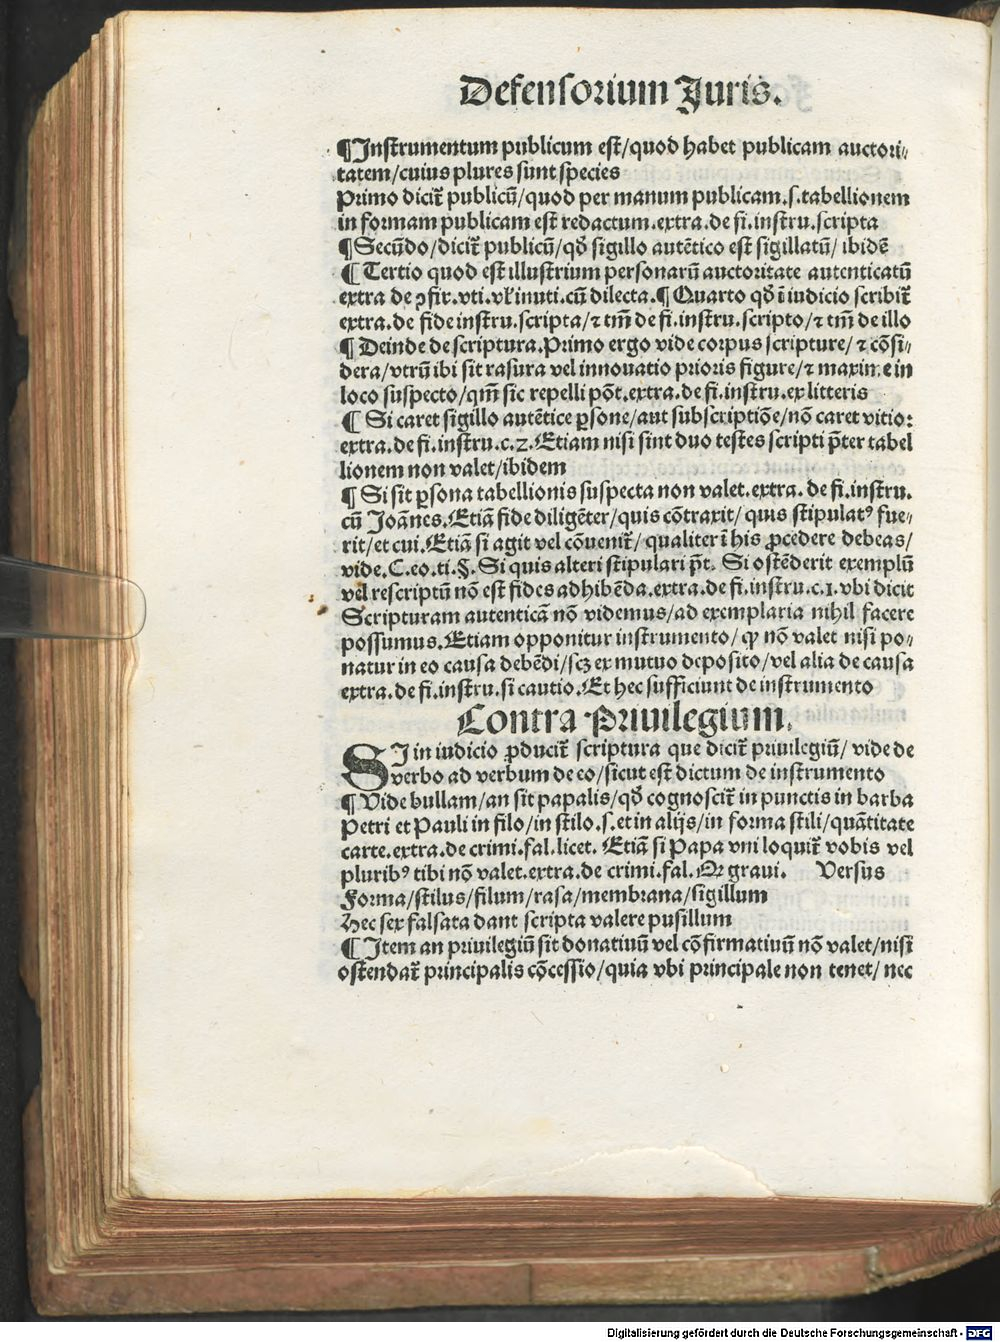 Defensorium Juris.
¶Instrumentum publicum est/quod habet publicam auctori⸗
tatem/cuius plures sunt species
Primo dicit̃ publicũ/quod per manum publicam.s.tabellionem
in formam publicam est redactum.extra.de fi.instru.scripta
¶Secũdo/dicit̃ publicũ/qđ sigillo autẽtico est sigillatũ/ ibidẽ
¶ Tertio quod est illustrium personarũ auctoritate autenticatũ
extra de ꝯfir.vti.vl̓ inuti.cũ dilecta.¶ Quarto qđ ĩ iudicio scribit̃
extra.de fide instru.scripta/⁊ tm̃ de fi.instru.scripto/⁊ tm̃ de illo
¶ Deinde de scriptura.Primo ergo vide corpus scripture/ ⁊ cõsi⸗
dera/vtrũ ibi sit rasura vel innouatio prioris figure/⁊ maxime in
loco suspecto/qm̃ sic repelli põt.extra.de fi.instru.ex litteris
¶ Si caret sigillo autẽtice ꝑsone/aut subscriptiõe/nõ caret vitio:
extra.de fi.instru.c.2.Etiam nisi sint duo testes scripti p̃ter tabel
lionem non valet/ibidem
¶ Si sit ꝑsona tabellionis suspecta non valet.extra. de fi.instru.
cũ Joãnes.Etiã fide diligẽter/quis cõtraxit/ quis stipulatꝰ fue⸗
rit/et cui.Etiã si agit vel cõuenit̃/ qualiter ĩ his ꝓcedere debeas/
vide.C.eo.ti.§.Si quis alteri stipulari p̃t. Si ostẽderit exemplũ
vel rescriptũ nõ est fides adhibẽda.extra.de fi.instru.c.1.vbi dicit
Scripturam autenticã nõ videmus/ad exemplaria nihil facere
possumus.Etiam opponitur instrumento/ ꝙ nõ valet nisi po⸗
natur in eo causa debẽdi/scꝫ ex mutuo deposito/vel alia de causa
extra.de fi.instru.si cautio.Et hec sufficiunt de instrumento
Contra Priuilegium.
SI in iudicio ꝓducit̃ scriptura que dicit̃ priuilegiũ/ vide de
verbo ad verbum de eo/sicut est dictum de instrumento
¶ Vide bullam/an sit papalis/qđ cognoscit̃ in punctis in barba
Petri et Pauli in filo/in stilo.s.et in alijs/in forma stili/quãtitate
carte.extra.de crimi.fal.licet. Etiã si Papa vni loquit̃ vobis vel
pluribꝰ tibi nõ valet.extra.de crimi.fal. graui. Versus
Forma/stilus/filum/rasa/membrana/sigillum
Hec sex falsata dant scripta valere pusillum
¶ Item an priuilegiũ sit donatiuũ vel cõfirmatiuũ nõ valet/nisi
ostendat̃ principalis cõcessio/quia vbi principale non tenet/ nec
Digitalisierung gefördert durch die Deutsche Forschungsgemeinschaft - DFG